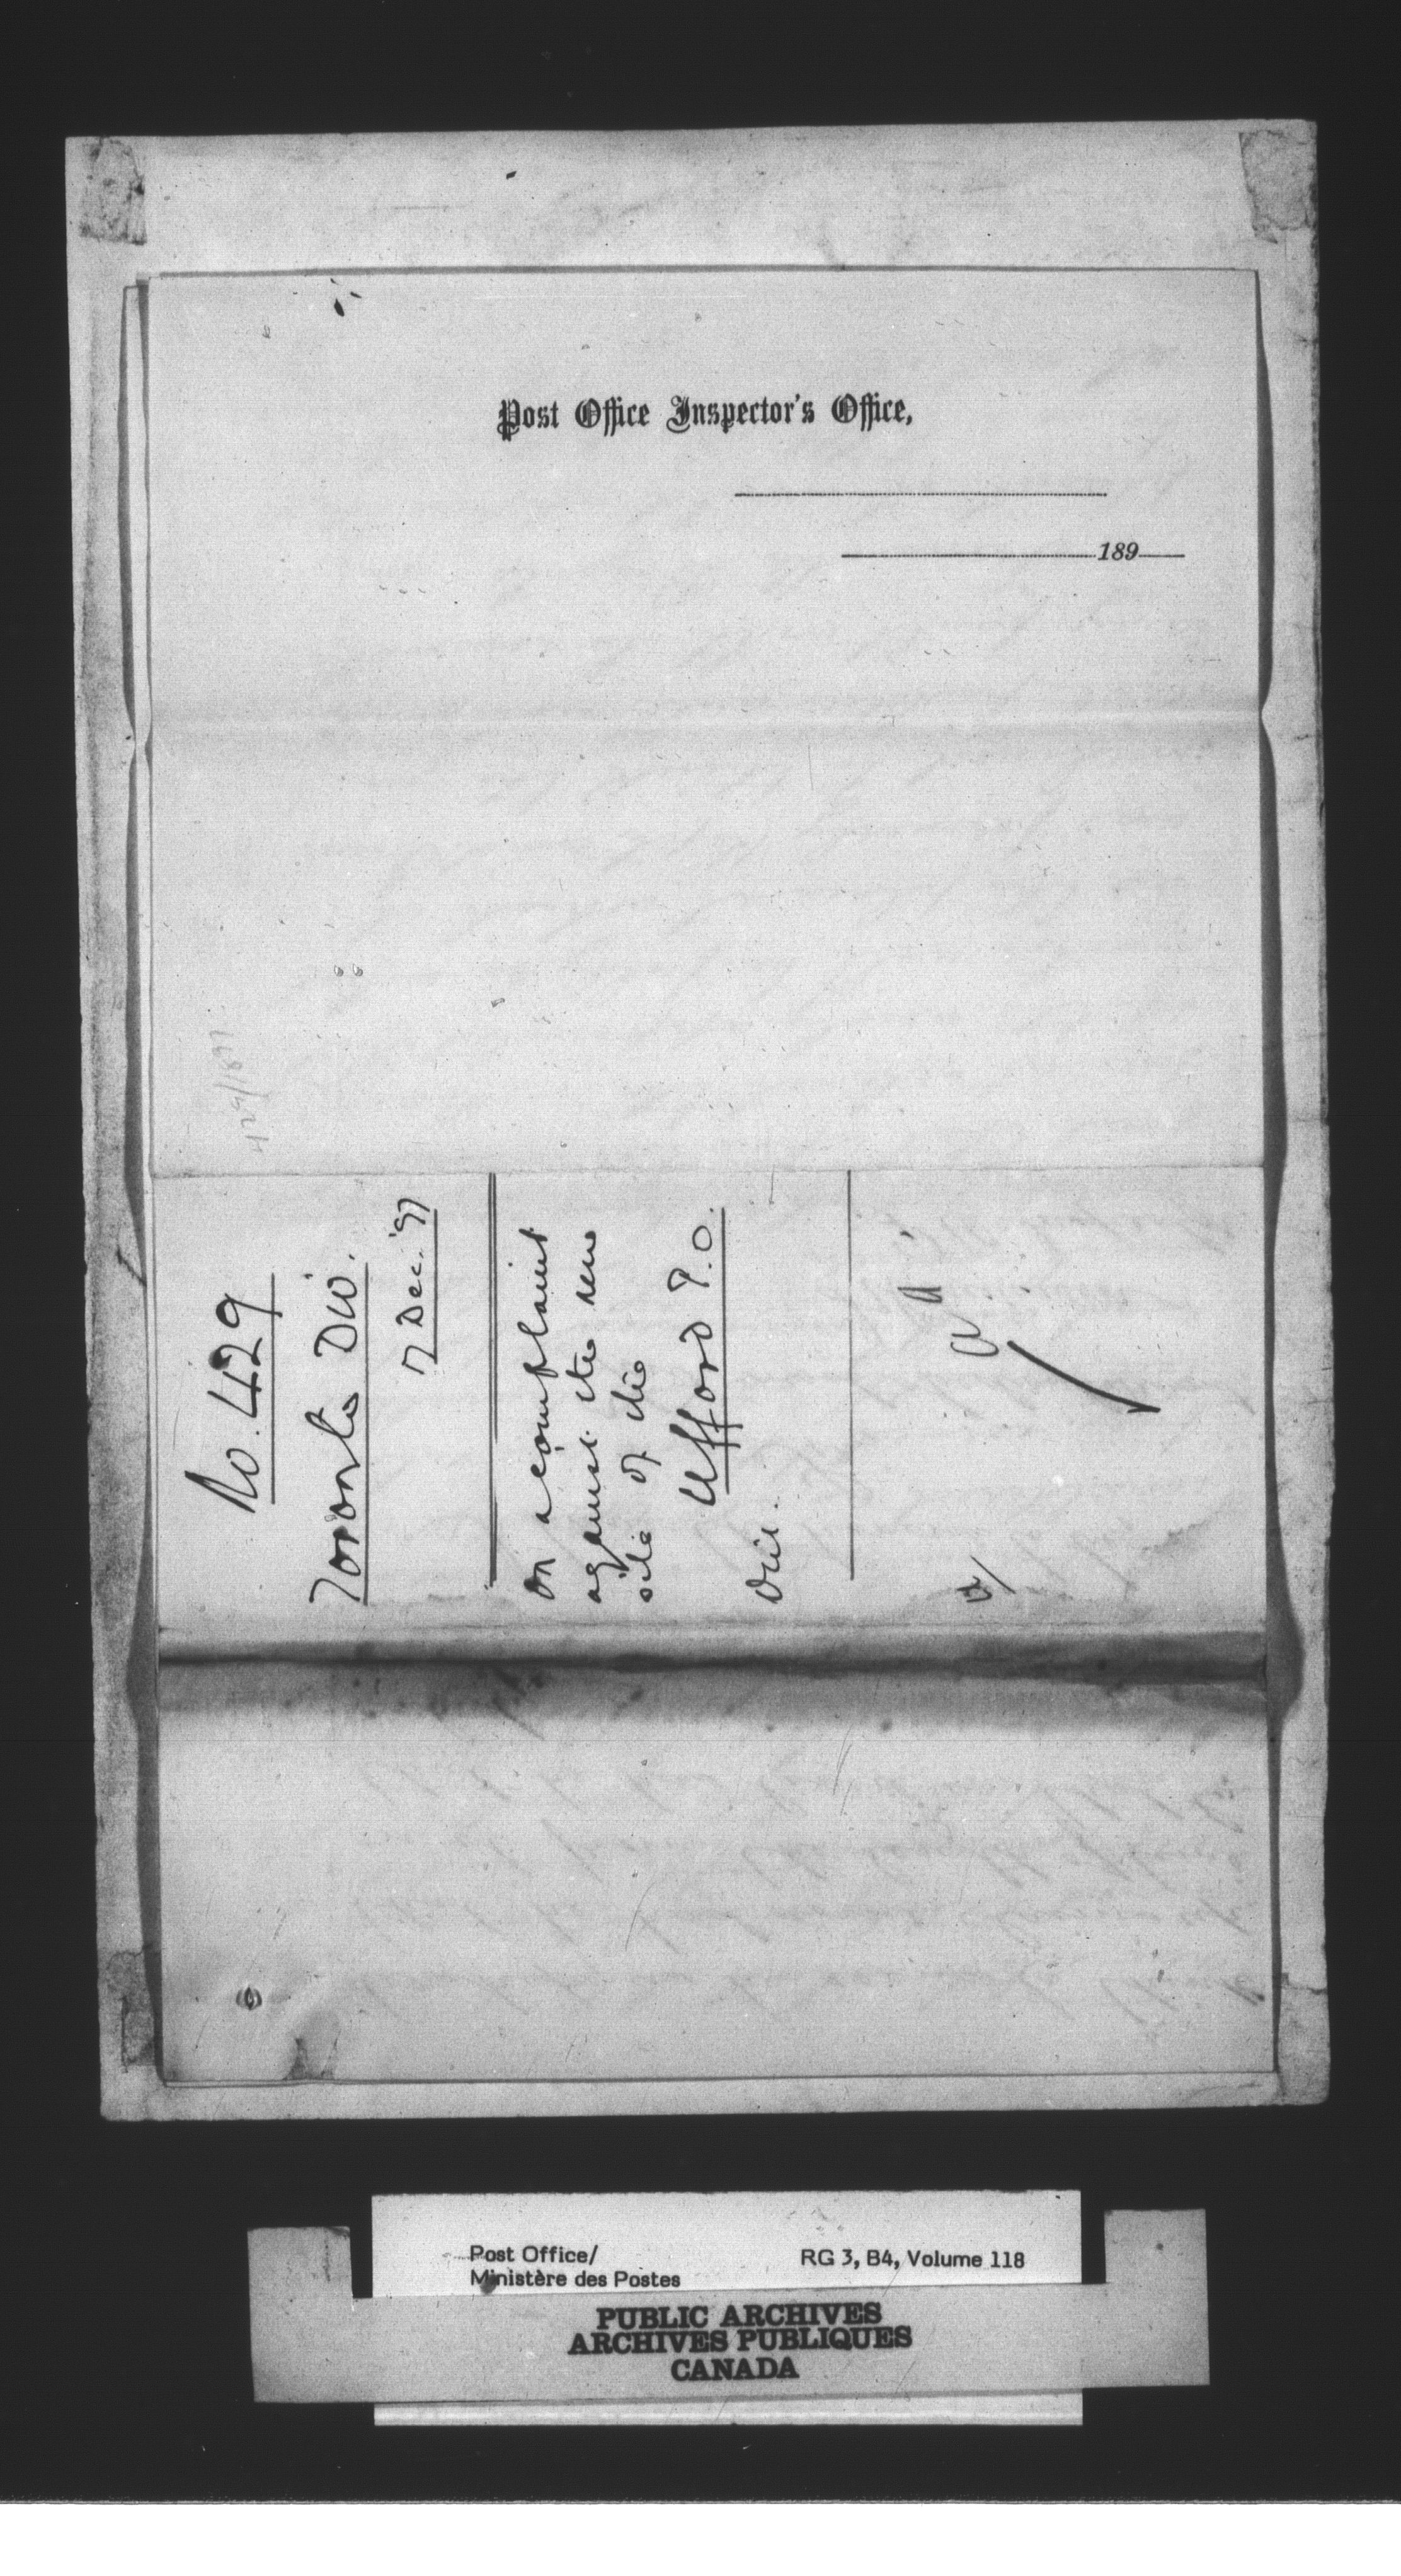 Post Office Inspector's Office,
189
429/1897
No. 429
Toronto Div.
7 Dec. '97
On a complaint
against the new
site of the
Ufford P.O.
Post Office/
Ministère des Postes
RG 3, B4, Volume 118
PUBLIC ARCHIVES
ARCHIVES PUBLIQUES
CANADA